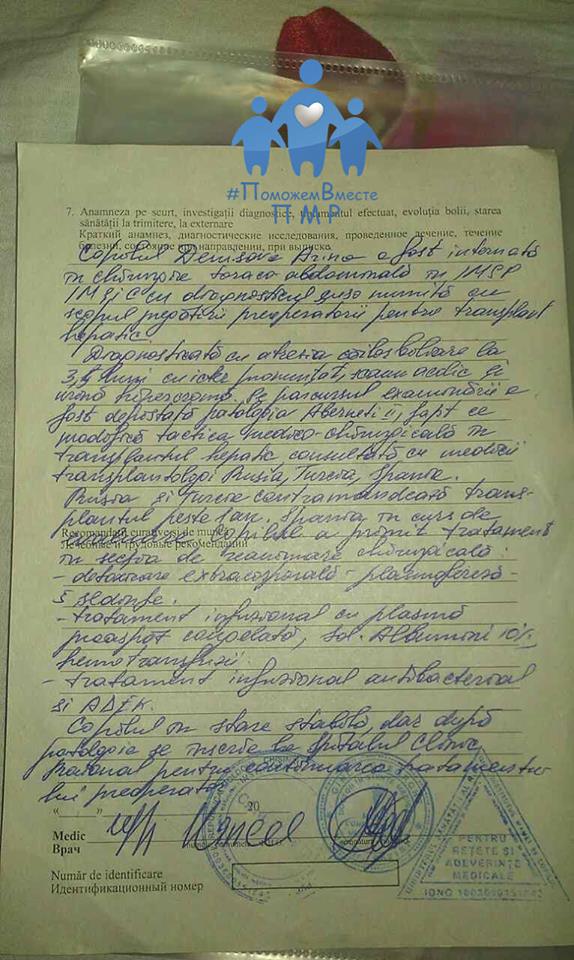 #ПоможемВместе
ПМР
7. Anamneza pe scurt, investigații diagnostice, tratamentul efectuat, evoluția bolii, starea
sănătății la trimitere, la externare
Краткий анамнез, диагностические исследования, проведенное лечение, течение
болезни, состояние при направлении, при выписке
Copilul Denisova Arina a fost internată
în chirurgie toraco abdominală în IMSP
IMȘiC cu diagnosticul susnumită cu
scopul pregătirii preoperatorii pentru transplant
hepatic.
Diagnosticată cu atrezia căilor biliare la
3,5 luni cu icter pronunțat, scaun acolic și
urină hipercromă. Pe parcursul examinării a
fost depistată patologia Aberneti II, fapt ce
modifică tactica medico-chirurgicală în
transplantul hepatic consultată cu medicii
transplantologi Rusia, Turcia, Spania.
Rusia și Turcia contramandează trans-
plantul peste 1 an. Spania în curs de
Recomandări curative și de muncă
Лечебные и трудовые рекомендации
Copilul a primit tratament
în secția de reanimare chirurgicală:
- detoxicare extracorporală - plasmafereză -
5 ședințe.
- tratament infuzional cu plasmă
proaspăt congelată, sol. Albumini 10%
hemotransfuzii.
- tratament infuzional antibacterial
și ADEK.
Copilul în stare stabilă, dar după
patologia se înscrie la Spitalul Clinic
Raional pentru continuarea tratamentu-
lui preoperator.
" " 20
Medic
Врач
semnătura
Număr de identificare
Идентификационный номер
PENTRU
REȚETE ȘI
ADEVERINȚE
MEDICALE